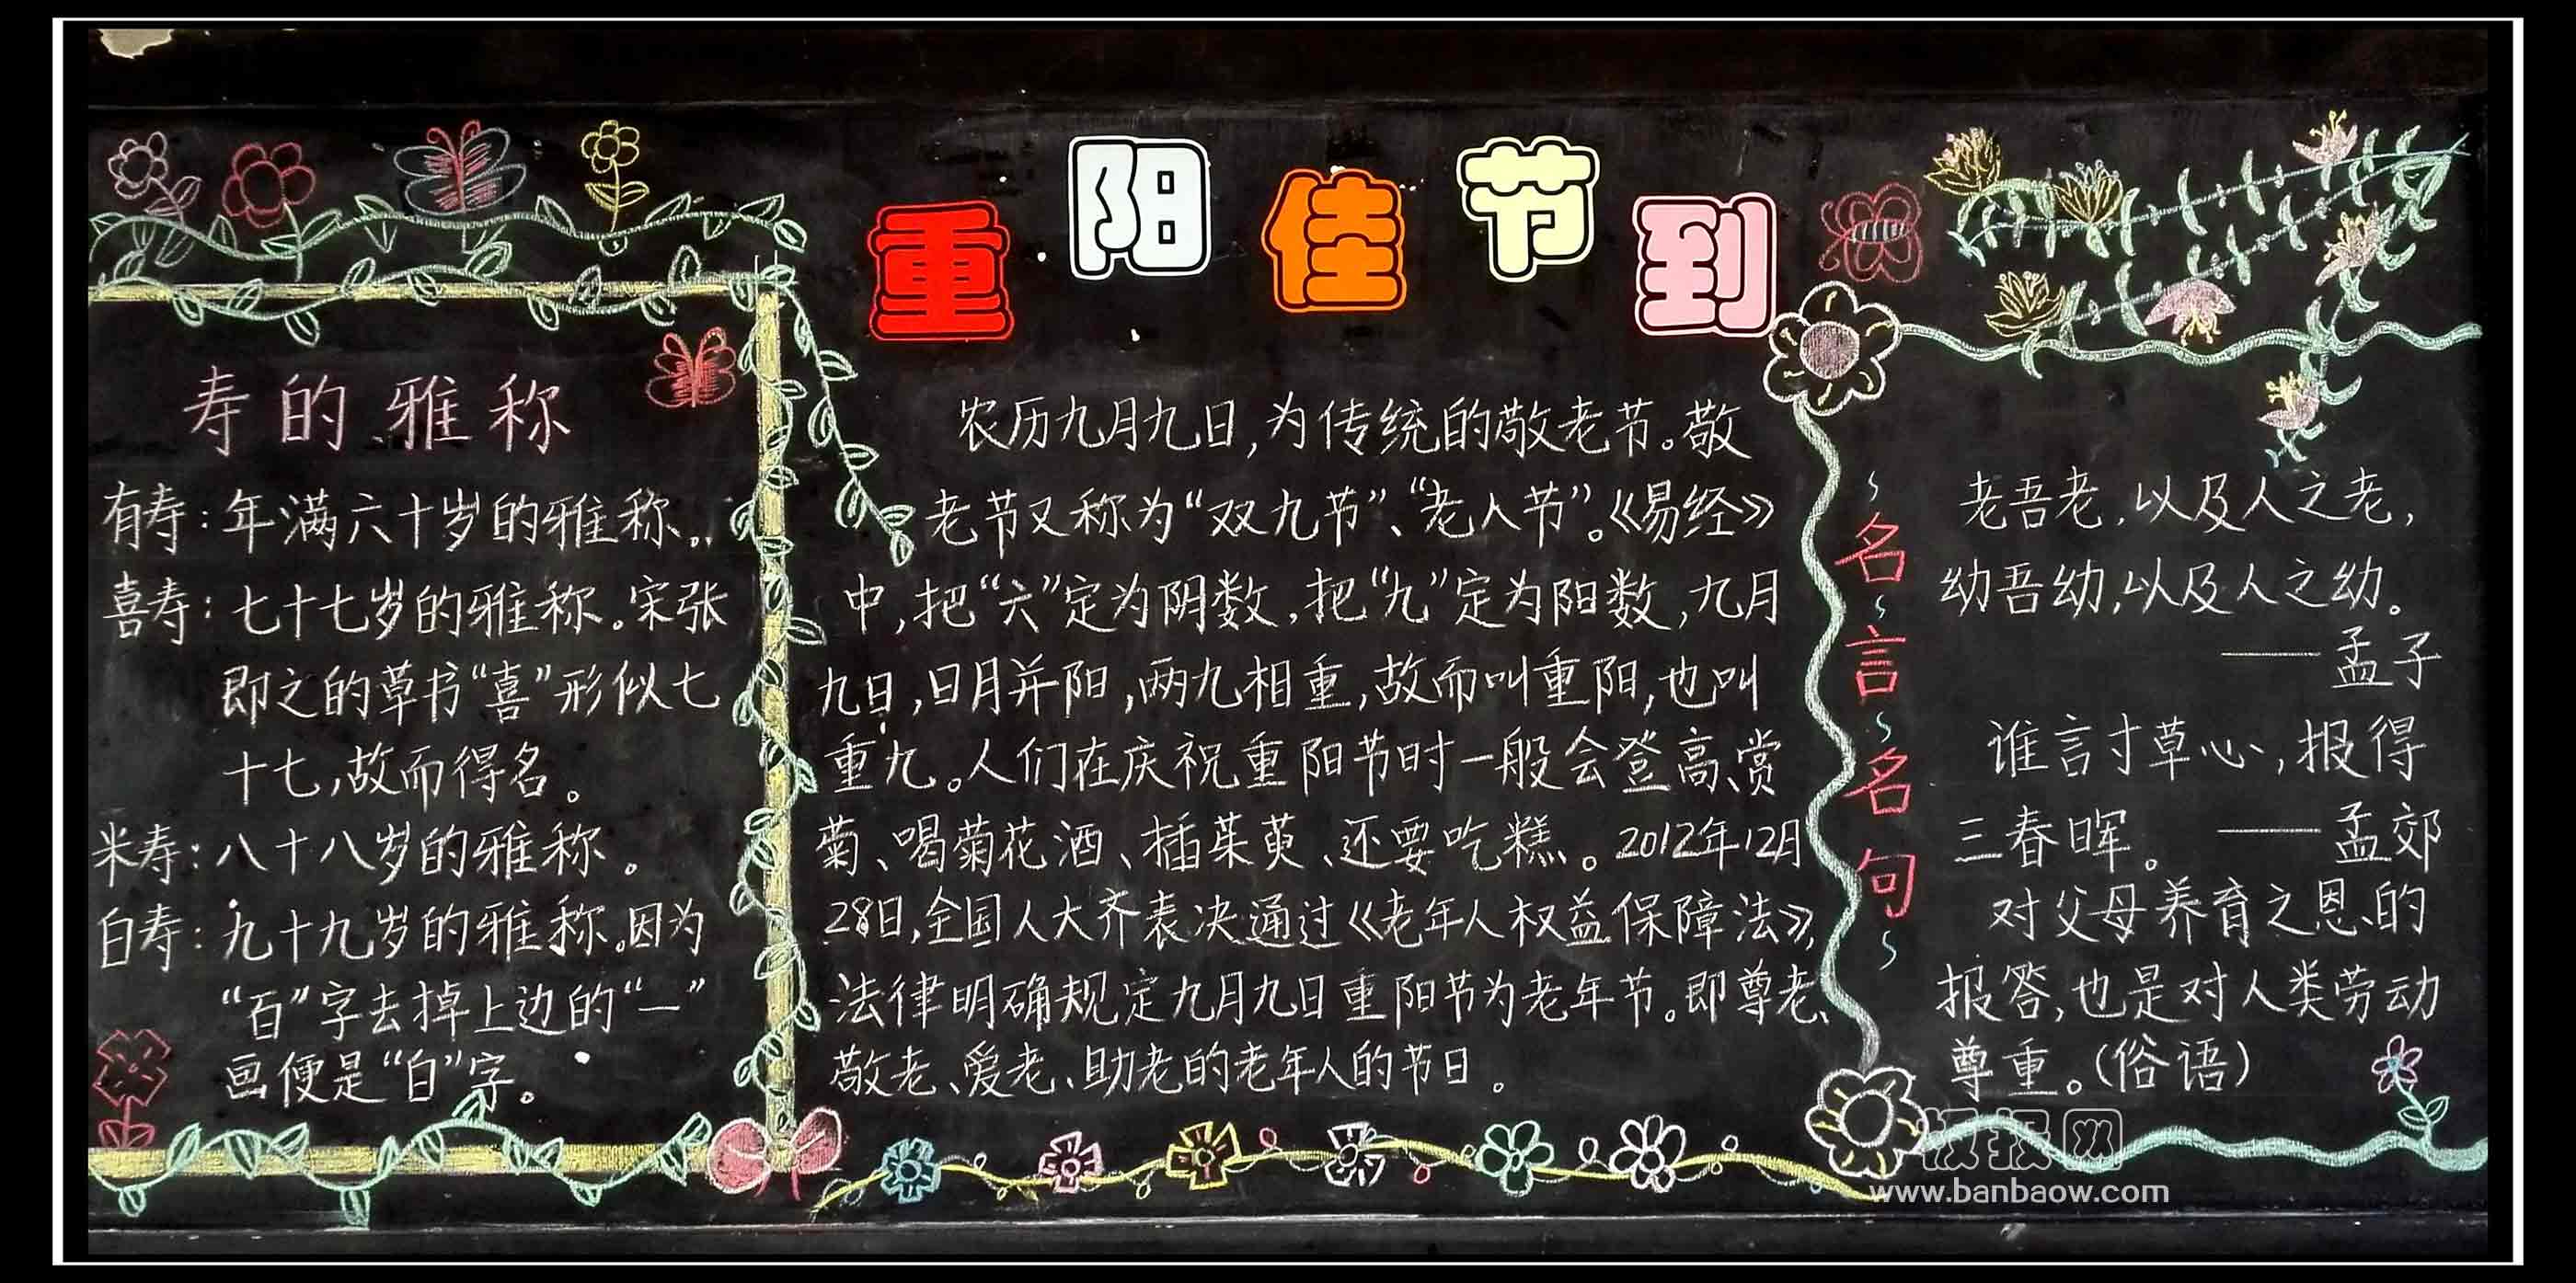 重阳佳节到
寿的雅称
有寿：年满六十岁的雅称。
喜寿：七十七岁的雅称。宋张
即之的草书“喜”形似七
十七，故而得名。
米寿：八十八岁的雅称。
白寿：九十九岁的雅称。因为
“百”字去掉上边的“一”
画便是“白”字。
农历九月九日，为传统的敬老节。敬
老节又称为“双九节”、“老人节”。《易经》
中，把“六”定为阴数，把“九”定为阳数，九月
九日，日月并阳，两九相重，故而叫重阳，也叫
重九。人们在庆祝重阳节时一般会登高、赏
菊、喝菊花酒、插茱萸、还要吃糕。2012年12月
28日，全国人大齐表决通过《老年人权益保障法》，
法律明确规定九月九日重阳节为老年节。即尊老、
敬老、爱老、助老的老年人的节日。
名言名句
老吾老，以及人之老，
幼吾幼，以及人之幼。
——孟子
谁言寸草心，报得
三春晖。——孟郊
对父母养育之恩的
报答，也是对人类劳动
尊重。（俗语）
板报网
www.banbaow.com